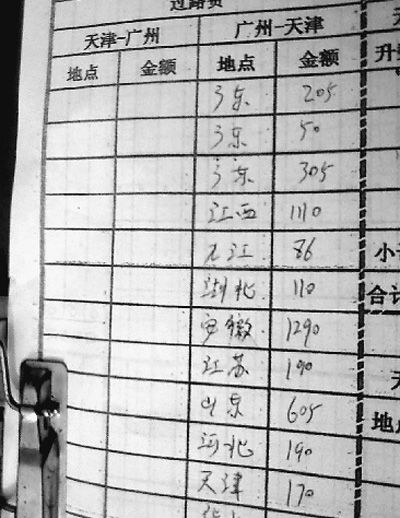 过路费
天津-广州 广州-天津
地点 金额 地点 金额
广东 205
广东 50
广东 305
江西 1110
九江 86
湖北 110
安徽 1290
江苏 190
山东 605
河北 190
天津 170
小
合计
地